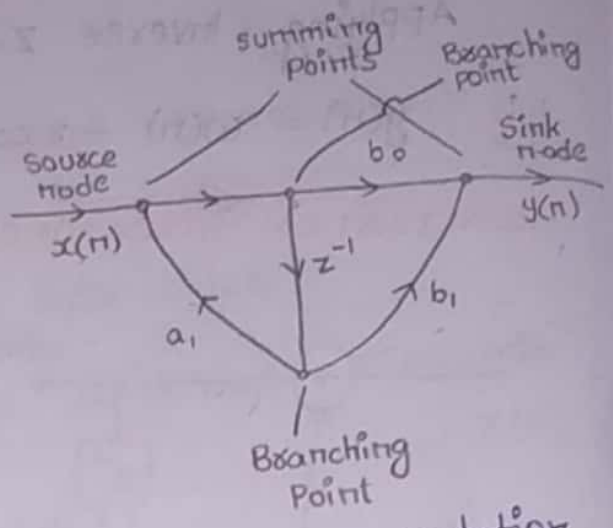 summing
points
Branching
point
Source
node
b₀
Sink
node
x(n)
y(n)
z⁻¹
a₁
b₁
Branching
Point